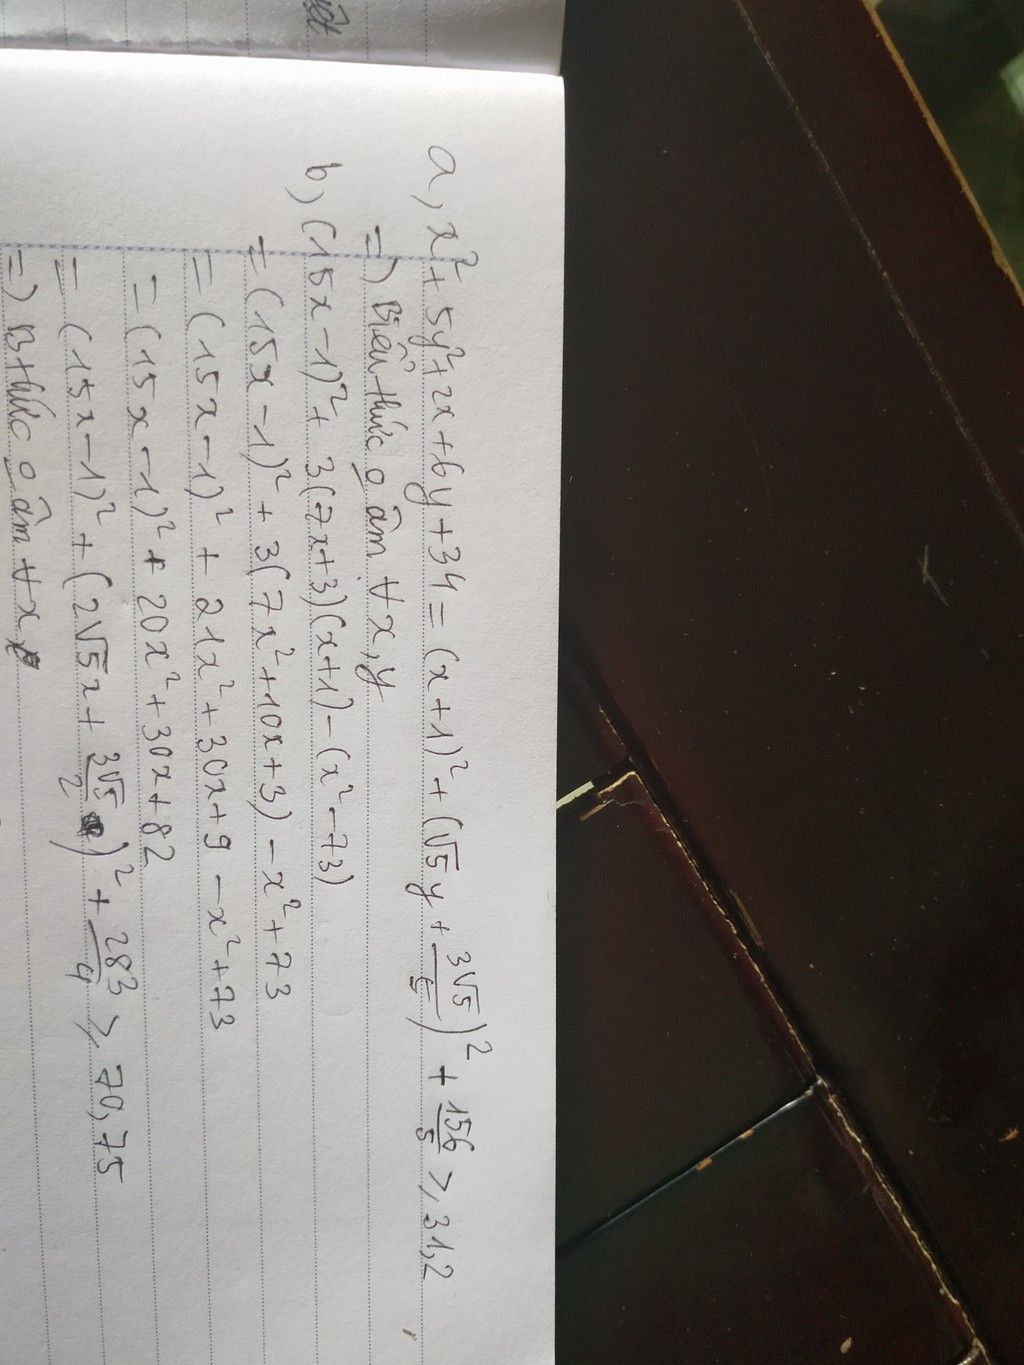 a, x² + 5y² + 2x + 6y + 34 = (x + 1)² + (√5y + 3√5/5)² + 156/5 ≥ 31,2
=) Biểu thức o âm ∀ x, y
b, (15x - 1)² + 3(7x+3)(x+1) - (x² - 73)
= (15x - 1)² + 3(7x² + 10x + 3) - x² + 73
= (15x - 1)² + 21x² + 30x + 9 - x² + 73
= (15x - 1)² + 20x² + 30x + 82
= (15x - 1)² + (2√5x + 3√5/2)² + 283/4 ≥ 70,75
=) B thức o âm ∀ x